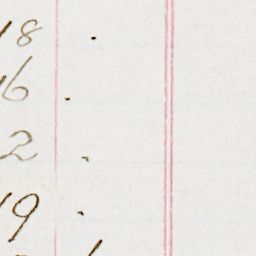 18 .
16 .
2 .
19 .